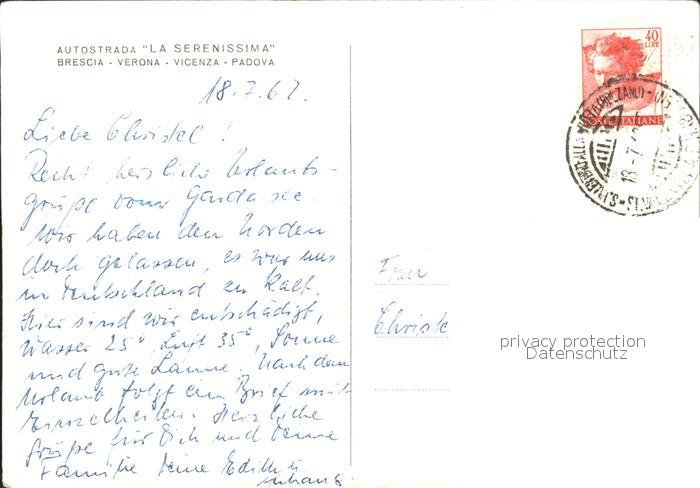 AUTOSTRADA "LA SERENISSIMA"
BRESCIA - VERONA - VICENZA - PADOVA
18.7.62.
Liebe Christel!
Recht herzliche Urlaubs-
grüße vom Gardasee.
Wir haben den Norden
doch gelassen, es war uns
in Deutschland zu kalt.
Hier sind wir entschädigt,
Wasser 25° Luft 35°, Sonne
und gute Laune. Nach dem
Urlaub folgt ein Brief mit
Einzelheiten. Herzliche
Grüße für Dich und Deine
Familie Deine Edith u.
40
LIRE
POSTE ITALIANE
18-7
Frau
Christe
privacy protection
Datenschutz